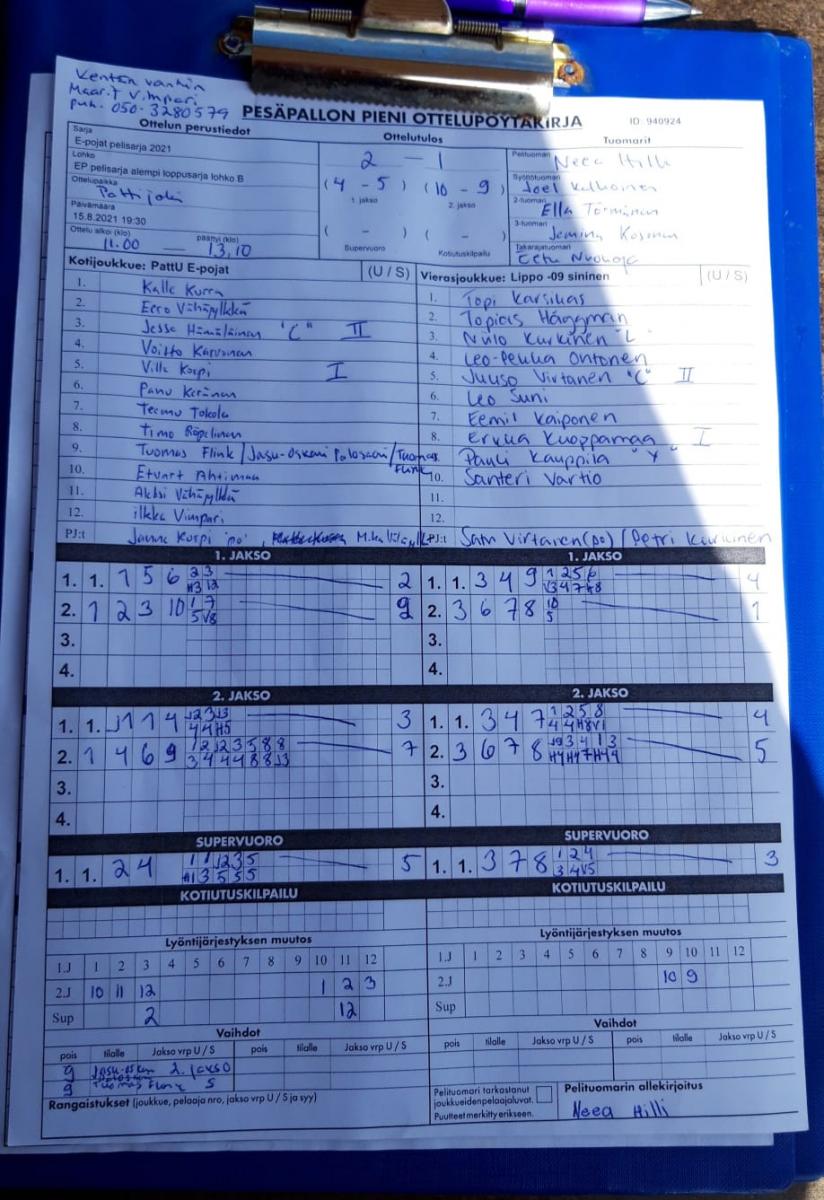 Kentän vanhin
Maarit Vimpari
puh. 050-3280579
PESÄPALLON PIENI OTTELUPÖYTÄKIRJA
ID: 940924
Ottelun perustiedot
Ottelutulos
Tuomarit
Sarja
E-pojat pelisarja 2021
Lohko
EP pelisarja alempi loppusarja lohko B
Ottelupaikka
Pattijoki
Päivämäärä
15.8.2021 19:30
Ottelu alkoi (klo) päättyi (klo)
11.00 — 13.10
2 — 1
(4 - 5) (10 - 9)
1. jakso 2. jakso
( - ) ( - )
Supervuoro Kotiutuskilpailu
Pelituomari
Neea Hilli
Syöttötuomari
Joel
2-tuomari
Ella Törmänen
3-tuomari
Jemina Kosonen
Takarajatuomari
Eetu
Kotijoukkue: PattU E-pojat (U / S)
1. Kalle Kurra
2. Eero Vähäpylkkä
3. Jesse Hämäläinen "C" II
4. Voitto Karvonen
5. Ville Korpi I
6. Panu Keränen
7. Teemu Tokola
8. Timo
9. Tuomas Flink / Jasu-Oskari Palosaari / Tuomas Flink
10. Etvart Ahtimaa
11. Aleksi Vähäpylkkä
12. Ilkka Vimpari
PJ:t Janne Korpi "po",
Vierasjoukkue: Lippo -09 sininen (U / S)
1. Topi Karsikas
2. Topias Häggman
3. Niilo Kurkinen "L"
4. Leo-Pekka Ontonen
5. Juuso Virtanen "C" II
6. Leo Suni
7. Eemil Kaiponen
8. Erkka Kuoppamaa I
9. Pauli Kauppila "Y"
10. Santeri Vartio
11.
12.
PJ:t Sam Virtanen (po) / Petri Kurkinen
1. JAKSO
1. 1. 1 5 6 2
2. 1 2 3 10 2
3.
4.
1. JAKSO
1. 1. 3 4 9 4
2. 3 6 7 8 1
3.
4.
2. JAKSO
1. 1. 1 1 4 3
2. 1 4 6 9 7
3.
4.
2. JAKSO
1. 1. 3 4 7 4
2. 3 6 7 8 5
3.
4.
SUPERVUORO
1. 1. 2 4 5
SUPERVUORO
1. 1. 3 7 8 3
KOTIUTUSKILPAILU
KOTIUTUSKILPAILU
Lyöntijärjestyksen muutos
1.J 1 2 3 4 5 6 7 8 9 10 11 12
2.J 10 11 12 1 2 3
Sup 2 12
Lyöntijärjestyksen muutos
1.J 1 2 3 4 5 6 7 8 9 10 11 12
2.J 10 9
Sup
Vaihdot
pois tilalle Jakso vrp U / S pois tilalle Jakso vrp U / S
9 Jasu-Oskari 2. jakso
9 Tuomas Flink S
Vaihdot
pois tilalle Jakso vrp U / S pois tilalle Jakso vrp U / S
Rangaistukset (joukkue, pelaaja nro, jakso vrp U / S ja syy)
Pelituomari tarkastanut
joukkueiden pelaajaluvat.
Puutteet merkitty erikseen.
Pelituomarin allekirjoitus
Neea Hilli